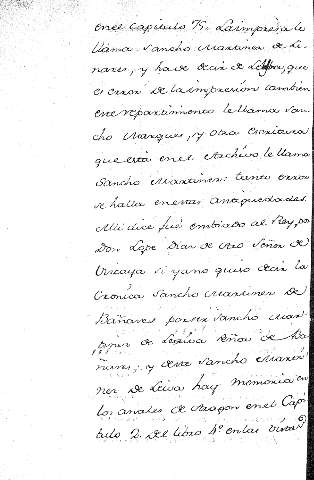 en el Capitulo 75. La impresa le
llama Sancho Martinez de Li-
nares, y ha de decir de Leyba, que
es error de la impresion tambien
en e repartimiento le llama San-
cho Marques, y otra Escritura
que está en el Archivo le llama
Sancho Martinez: tanto error
se halla en estas antiguedades.
Alli dice fué embiado al Rey, por
Don Lope Diaz de Aro Señor de
Vizcaya si ya no quiso decir la
Cronica Sancho Martinez De
Bañares por ser Sancho Mar-
tinez de Leiba Señor de Ba-
ñares, y de este Sancho Marti
nez de Leiva hay memoria en
los anales de Aragon en el Capi
tulo 2. Del libro 4º en las vistas